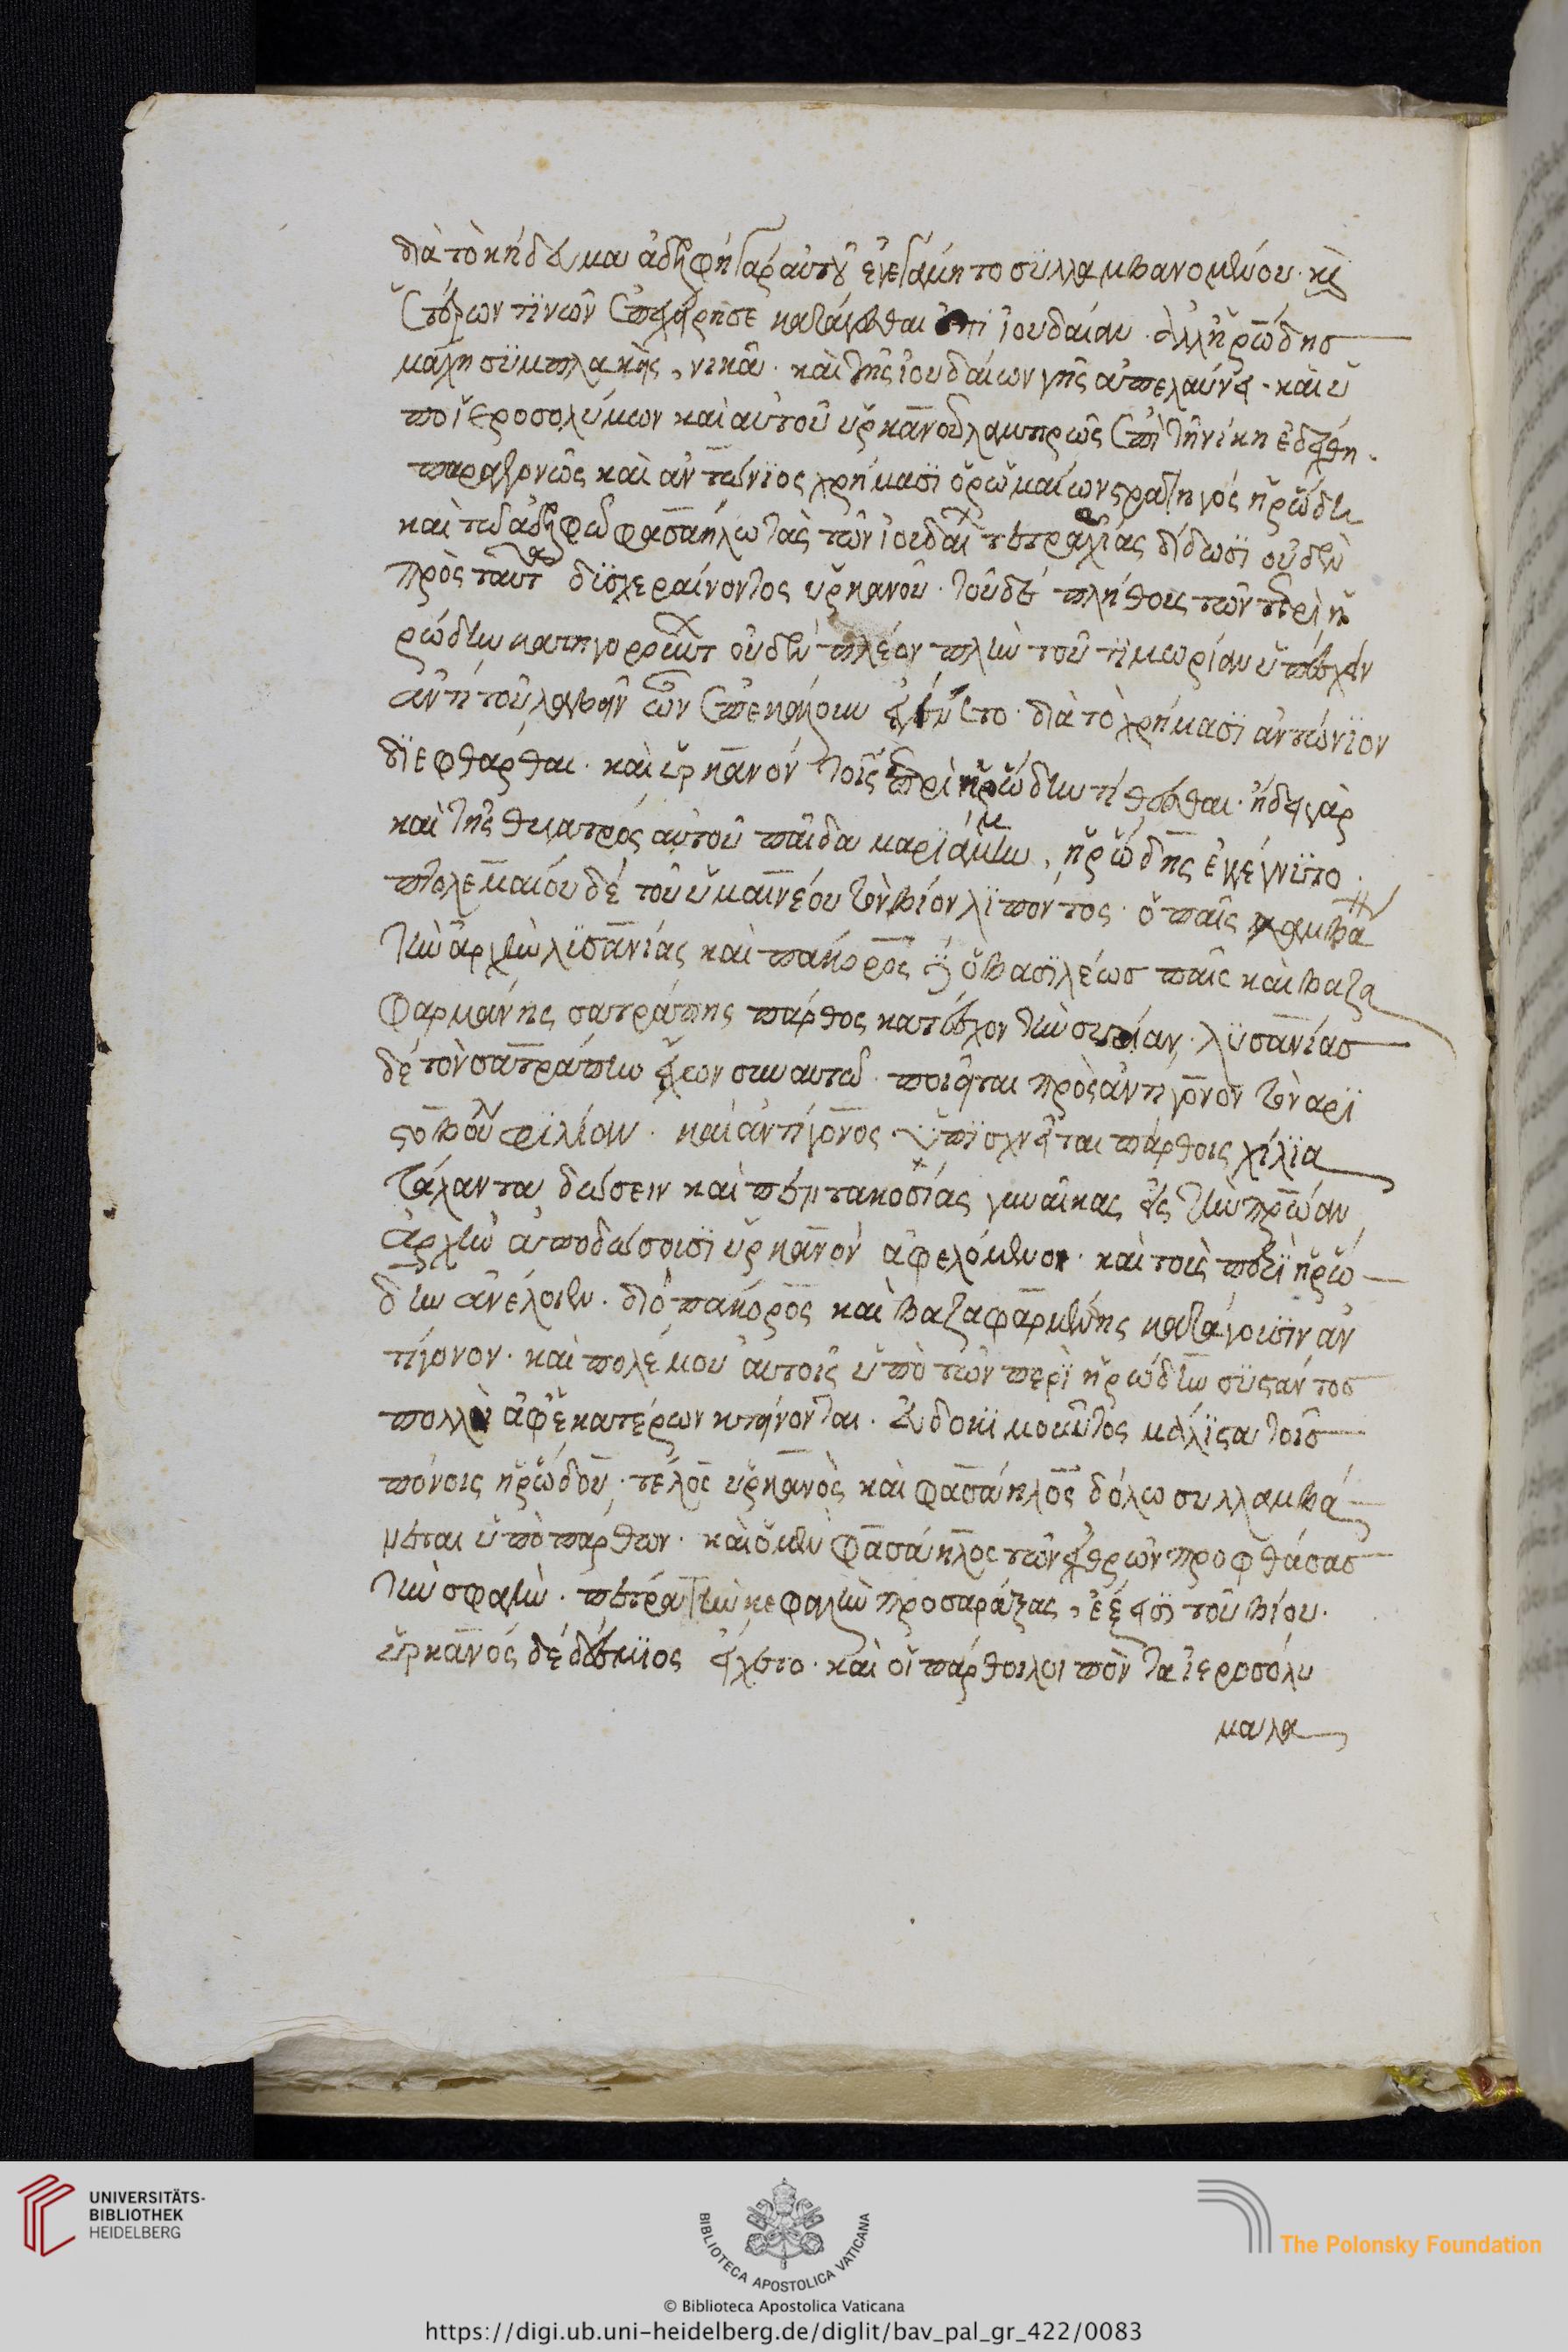 διὰ τὸ κήδευμα ἀδελφὴ γὰρ αὐτοῦ ἐγεγάμητο συλλαμβανομένου. καὶ
ἑτέρων τινῶν ἐπεχείρησε κατάγεσθαι ἐπὶ ἰουδαίαν. ἀλλ' ἡρώδης
μάχη συμπλακεὶς, νικᾶ. καὶ τῆς ἰουδαίων γῆς ἀπελαύνει. καὶ ὑ
πὸ ἱεροσολύμων καὶ αὐτοῦ ὑρκανοῦ λαμπρῶς ἐπὶ τῆ νίκη ἐδέχθη.
παραγεγονὼς καὶ ἀντώνιος χρήμασι ὁ ῥωμαίων στρατηγὸς ἡρώδη
καὶ τῶ ἀδελφῶ φασαήλω τὰς τῶν ἰουδαί τετραρχίας δίδωσι οὐδὲν
πρὸς ταῦτα δυσχεραίνοντος ὑρκανοῦ. τοῦ δὲ πλήθους τῶν περὶ ἡ
ρώδην κατηγοροῦντ οὐδὲν πλέον πλὴν τοῦ τιμωρίαν ὑπέσχεν
ἀντὶ τοῦ λαβεῖν ὧν ἐπεκάλουν ἐγένετο. διὰ τὸ χρήμασι ἀντώνιον
διεφθάρθαι. καὶ ὑρκανὸν τοῖς περὶ ἡρώδην τίθεσθαι. ἤδη γὰρ
καὶ τῆς θυγατρὸς αὐτοῦ παῖδα μαριάμμην, ἡρώδης ἐνεγύητο.
πτολεμαίου δὲ τοῦ ὑμαινέου τὸν βίον λιπόντος. ὁ παῖς λαμβά
τὴν ἀρχὴν λυσανίας καὶ πάκορος ὁ βασιλέως παῖς καὶ βαζα
φαρμάνης σατράπης πάρθος κατέσχον τὴν συρίαν. λυσανίας
δὲ τὸν σατράπην ἔχων συν αὐτῶ. ποιεῖται πρὸς ἀντίγονον τὸν ἀρι
στοβούλου φιλίαν. καὶ ἀντίγονος ὑπισχνεῖται πάρθοις χίλια
τάλαντα δώσειν καὶ πεντακοσίας γυναῖκας εἰς τὴν πρώαν
ἀρχὴν ἀποδώσουσι ὑρκανὸν ἀφελόμενοι. καὶ τοὺς περὶ ἡρώ
δην ἀνέλοιεν. διὸ πάκορος καὶ βαζαφαρμένης κατάγουσιν ἀν
τίγονον. καὶ πολέμου αὐτοῖς ὑπὸ τῶν περὶ ἡρώδην συστάντος
πολλοὶ ἀφ' ἑκατέρων κτείνονται. εὐδοκιμοῦντος μάλιστα τοῖς
πόνοις ἡρώδου. τέλος ὑρκανὸς καὶ φασάηλος δόλω συλλαμβά
νεται ὑπὸ πάρθων. καὶ ὁ μὲν φασάηλος τῶν ἐχθρῶν προφθάσας
τὴν σφαγὴν. πέτρα τὴν κεφαλὴν προσαράξας, ἔξεισι τοῦ βίου.
ὑρκανὸς δὲ δέσμιος εἴχετο. καὶ οἱ πάρθοι λοιπὸν τὰ ἱεροσόλυ
μα λα
UNIVERSITÄTS-
BIBLIOTHEK
HEIDELBERG
BIBLIOTECA APOSTOLICA VATICANA
The Polonsky Foundation
© Biblioteca Apostolica Vaticana
https://digi.ub.uni-heidelberg.de/diglit/bav_pal_gr_422/0083